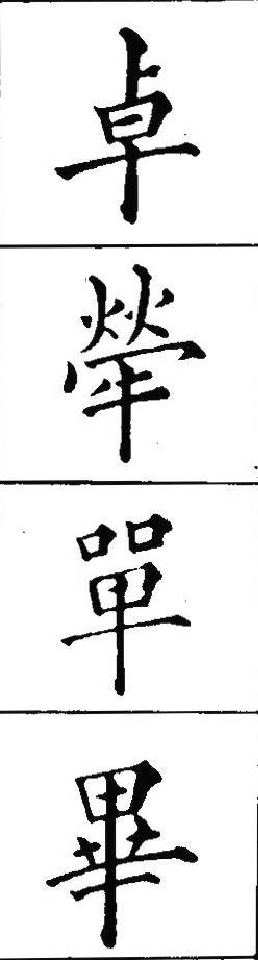 卓
犖
單
畢